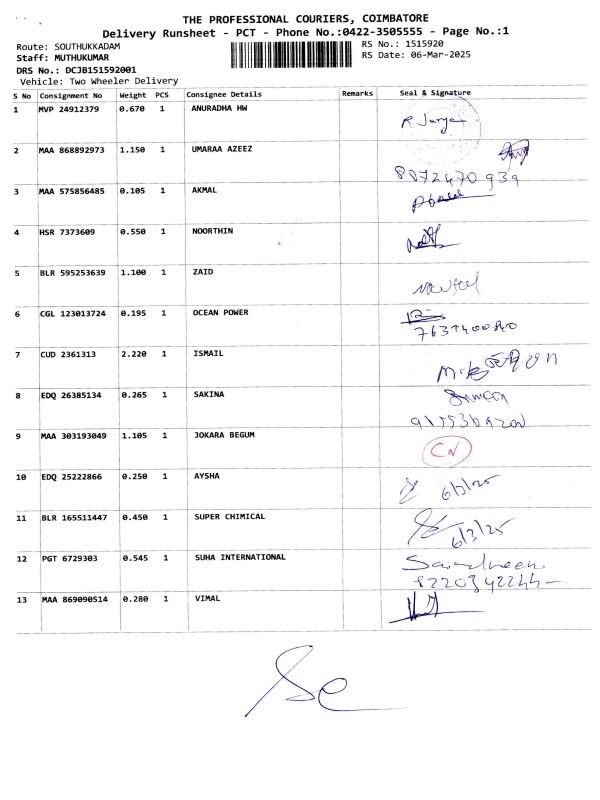 THE PROFESSIONAL COURIERS, COIMBATORE
Delivery Runsheet - PCT - Phone No.:0422-3505555 - Page No.:1
Route: SOUTHUKKADAM
RS No.: 1515920
Staff: MUTHUKUMAR
RS Date: 06-Mar-2025
DRS No.: DCJB151592001
Vehicle: Two Wheeler Delivery
S No Consignment No Weight PCS Consignee Details Remarks Seal & Signature
1 MVP 24912379 0.670 1 ANURADHA HW
2 MAA 868892973 1.150 1 UMARAA AZEEZ
8072470939
3 MAA 575856485 0.105 1 AKMAL
4 HSR 7373609 0.550 1 NOORTHIN
5 BLR 595253639 1.100 1 ZAID
6 CGL 123013724 0.195 1 OCEAN POWER
7 CUD 2361313 2.220 1 ISMAIL
8 EDQ 26385134 0.265 1 SAKINA
9 MAA 303193049 1.105 1 JOKARA BEGUM CN
10 EDQ 25222866 0.250 1 AYSHA 6/3/25
11 BLR 165511447 0.450 1 SUPER CHIMICAL 6/3/25
12 PGT 6729303 0.545 1 SUHA INTERNATIONAL
8220342244
13 MAA 869090514 0.280 1 VIMAL